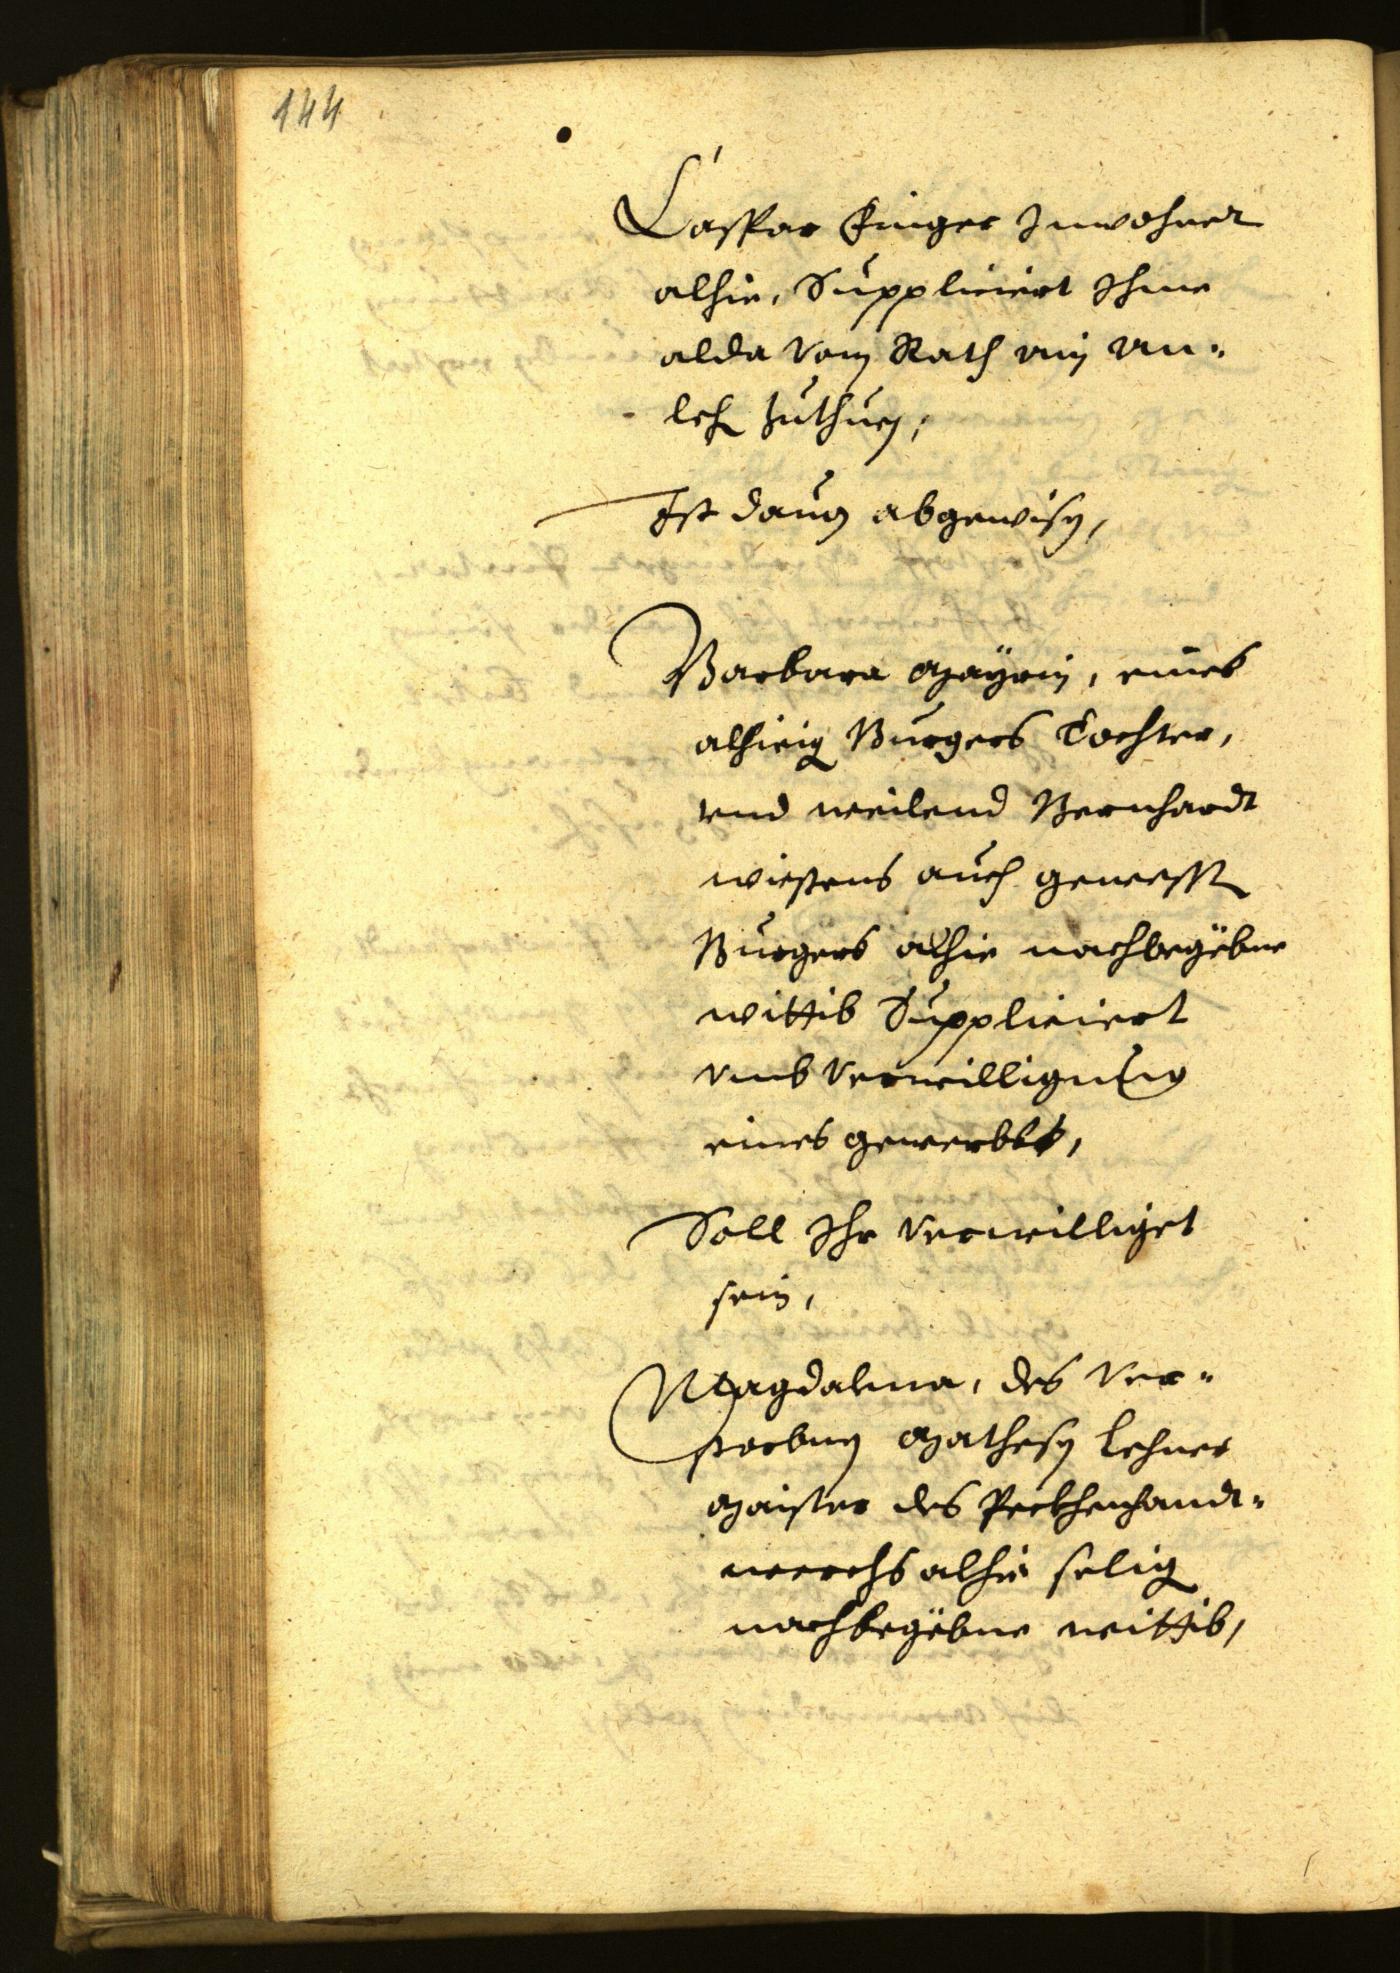 144
Casspar Singer Inwohner
alhie, Suppliciert Ihme
alda vom Rath ein an¬
leh zuthuen,
Ist dauon abgewisen,
Barbara Mayrin, eines
alhieigen Burgers Tochter,
vnd weilend Bernhardt
auch gewessten
Burgers alhie nachbegebne
wittib Suppliciert
vmb verwilligung
eines gewerbbs,
Soll Ihr verwilliget
sein,
Magdalena, des ver¬
storbnen Mathesen Lehner
Maister des Peckhenhandt¬
werchs alhie seligen
nachbegebne wittib,